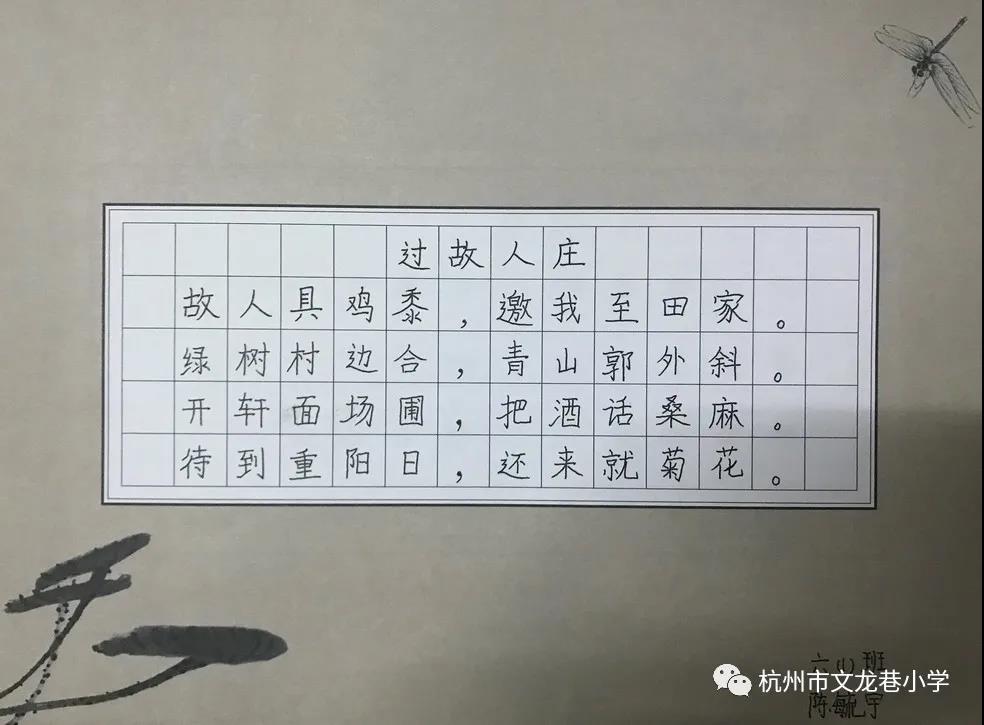 过故人庄
故人具鸡黍，邀我至田家。
绿树村边合，青山郭外斜。
开轩面场圃，把酒话桑麻。
待到重阳日，还来就菊花。
六(1)班
杭州市文龙巷小学
陈毓宇